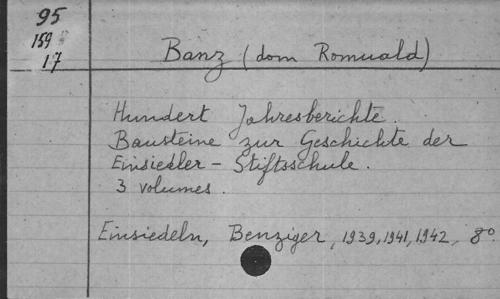 95
159
17
Banz (dom Romuald)
Hundert Jahresberichte.
Bausteine zur Geschichte der
Einsiedler - Stiftsschule.
3 volumes.
Einsiedeln, Benziger, 1939, 1941, 1942, 8°